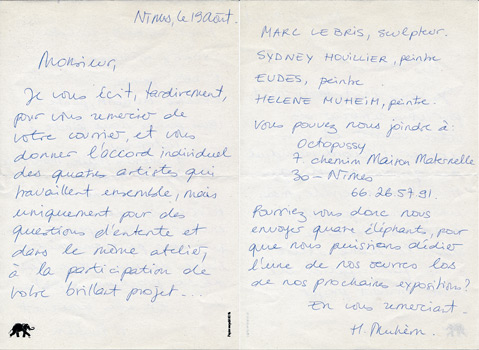 Nîmes, le 19 août.
Monsieur,
Je vous écrit, tardivement,
pour vous remercier de
votre courrier, et vous
donner l'accord individuel
des quatres artistes qui
travaillent ensemble, mais
uniquement pour des
questions d'entente et
dans le même atelier,
à la participation de
votre brillant projet...
MARC LE BRIS, sculpteur.
SYDNEY HOUILLIER, peintre
EUDES, peintre.
HELENE MUHEIM, peintre.
Vous pouvez nous joindre à :
Octopussy
7 chemin Maison Maternelle
30 - Nîmes
66.26.57.91.
Pourriez vous donc nous
envoyer quatre éléphants, pour
que nous puissions dédier
l'une de nos œuvres lors
de nos prochaines expositions?
En vous remerciant.
H. Muheim.